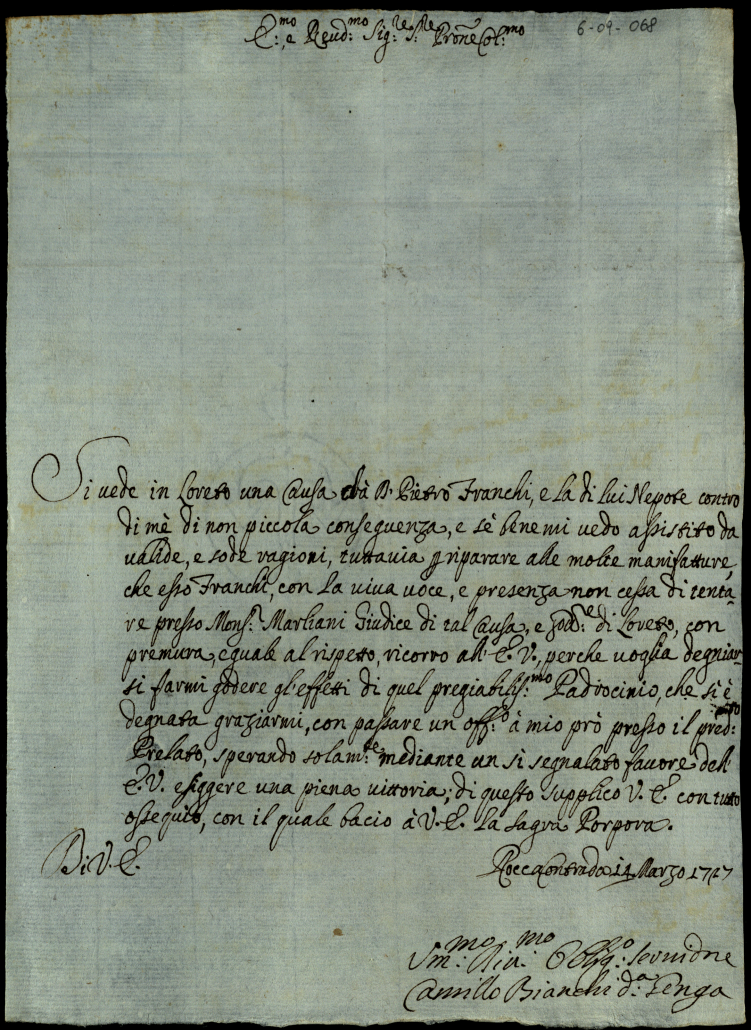 E:mo, e Reud:mo Sig:re S:re Prone Col:mo
6-09-068
Si vede in Loreto una Causa dà D. Pietro Franchi, e la di lui Nepote contro
di mè di non piccola conseguenza, e sè bene mi vedo assistito da
valide, e sode ragioni, tuttavia p riparare alle molte manifatture,
che esso Franchi, con la viva voce, e presenza non cessa di tenta-
re presso Mons.r Marliani Giudice di tal Causa, e Gov:re di Loreto, con
premura, eguale al rispetto, ricorro all' E. V., perche voglia degniar-
si farmi godere gl'effetti di quel pregiabiliss:mo Padrocinio, che si è
degnata graziarmi, con passare un off:o à mio prò presso il pred:o
Prelato, sperando solam:te mediante un sì segnalato favore dell'
E. V. esiggere una piena vittoria; di questo supplico V. E. con tutto
ossequio, con il quale bacio à V. E. la sagra Porpora.
Di V. E.
Rocca Contrada 14 Marzo 1727
Um:mo Div:mo Oblig:o Servidre
Camillo Bianchi d:a Genga